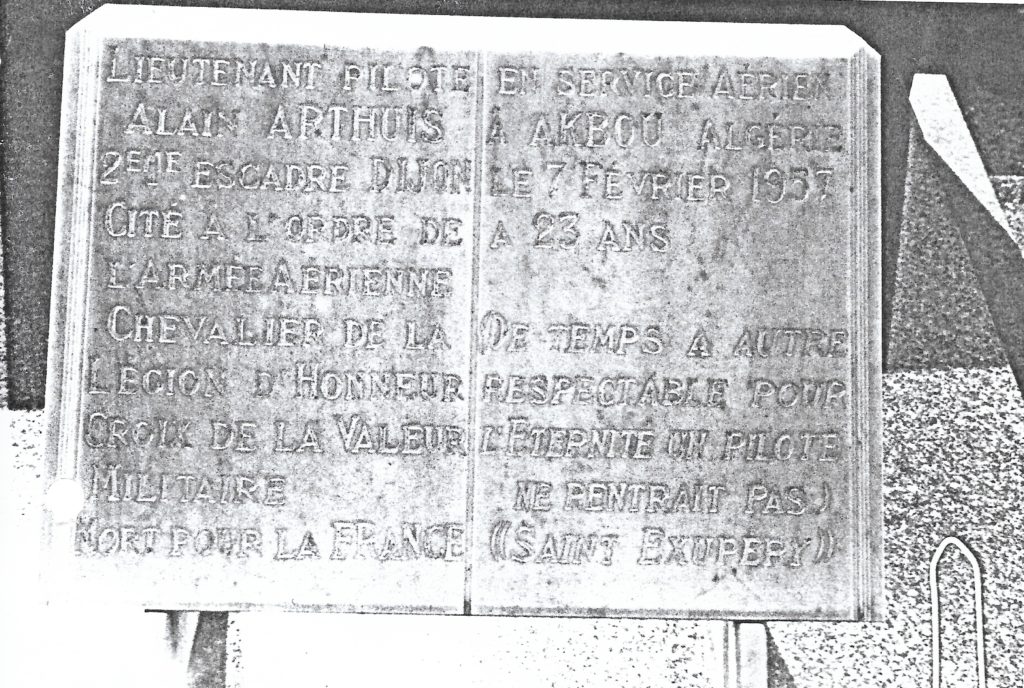 LIEUTENANT PILOTE
ALAIN ARTHUIS
2EME ESCADRE DIJON
CITÉ À L'ORDRE DE
L'ARMÉE AÉRIENNE
CHEVALIER DE LA
LÉGION D'HONNEUR
CROIX DE LA VALEUR
MILITAIRE
MORT POUR LA FRANCE
EN SERVICE AÉRIEN
À AKBOU ALGÉRIE
LE 7 FÉVRIER 1957
A 23 ANS
(DE TEMPS A AUTRE
RESPECTABLE POUR
L'ETERNITÉ UN PILOTE
NE RENTRAIT PAS)
((SAINT EXUPERY))